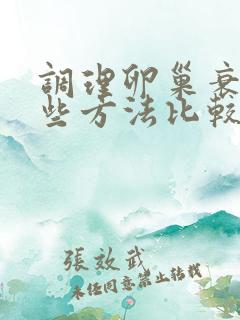 調理卵巢衰
些方法比較
張效武
未經同意禁止轉載